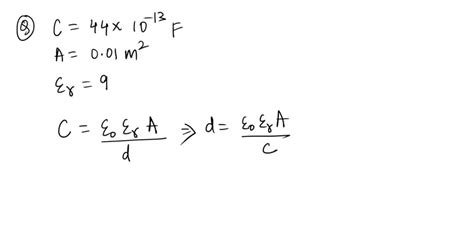 Q C = 44 × 10⁻¹³ F
A = 0.01 m²
εᵣ = 9
C = ε₀ εᵣ A / d ⇒ d = ε₀ εᵣ A / C